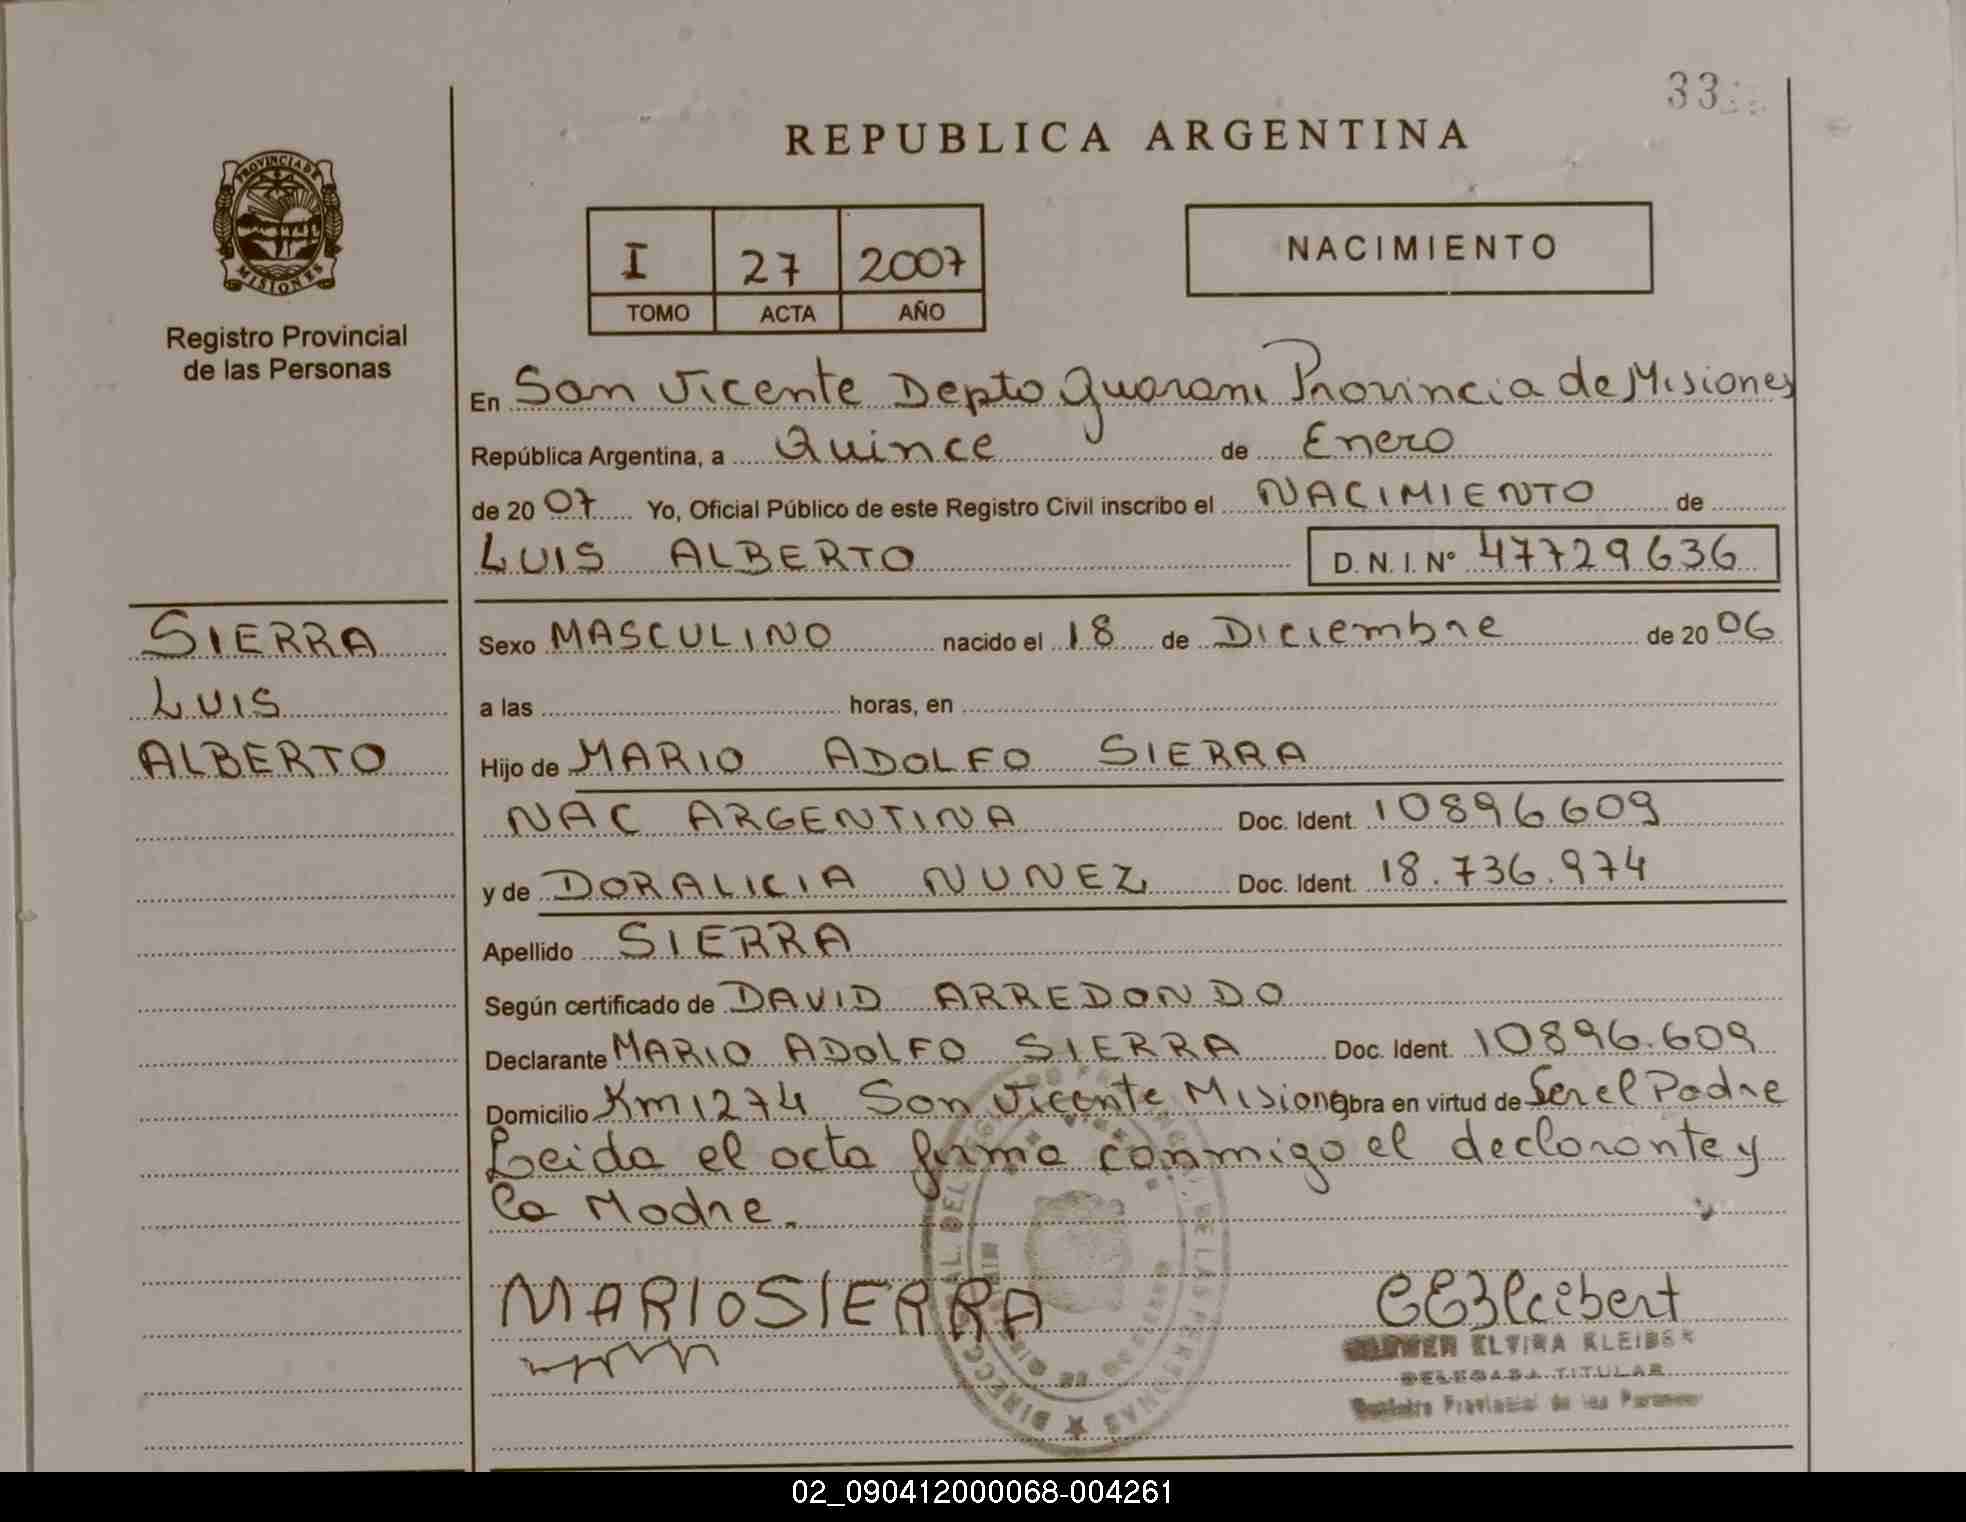 33
REPUBLICA ARGENTINA
PROVINCIA DE
MISIONES
Registro Provincial
de las Personas
I 27 2007
TOMO ACTA AÑO
NACIMIENTO
En San Vicente Depto Guarani Provincia de Misiones
República Argentina, a Quince de Enero
de 2007 Yo, Oficial Público de este Registro Civil inscribo el NACIMIENTO de
LUIS ALBERTO D.N.I. Nº 47729636
SIERRA
LUIS
ALBERTO
Sexo MASCULINO nacido el 18 de Diciembre de 2006
a las horas, en
Hijo de MARIO ADOLFO SIERRA
NAC ARGENTINA Doc. Ident. 10896609
y de DORALICIA NUNEZ Doc. Ident. 18.736.974
Apellido SIERRA
Según certificado de DAVID ARREDONDO
Declarante MARIO ADOLFO SIERRA Doc. Ident. 10896.609
Domicilio Km 1274 San Vicente Misiones obra en virtud de Ser el Padre
Leida el acta firma conmigo el declarante y
la Madre.
MARIO SIERRA
ELVIRA KLEIBER
DELEGADA TITULAR
Registro Provincial de las Personas
02_090412000068-004261